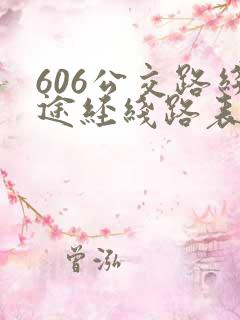 606公交路线
途经线路表
曾泓